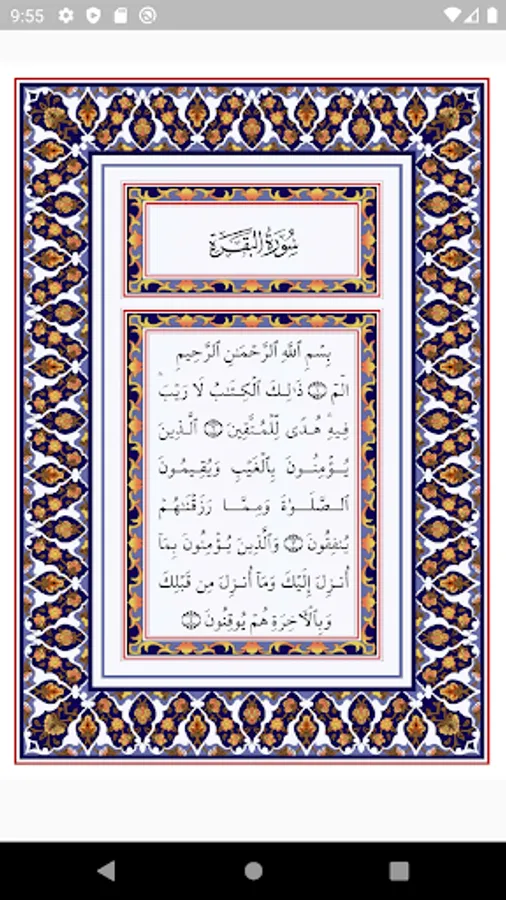 9:55
سُورَةُ الْبَقَرَةِ
بِسْمِ ٱللَّهِ ٱلرَّحْمَـٰنِ ٱلرَّحِيمِ
الٓمٓ ۝١ ذَٰلِكَ ٱلْكِتَـٰبُ لَا رَيْبَ ۛ
فِيهِ ۛ هُدًى لِّلْمُتَّقِينَ ۝٢ ٱلَّذِينَ
يُؤْمِنُونَ بِٱلْغَيْبِ وَيُقِيمُونَ
ٱلصَّلَوٰةَ وَمِمَّا رَزَقْنَـٰهُمْ
يُنفِقُونَ ۝٣ وَٱلَّذِينَ يُؤْمِنُونَ بِمَآ
أُنزِلَ إِلَيْكَ وَمَآ أُنزِلَ مِن قَبْلِكَ
وَبِٱلْـَٔاخِرَةِ هُمْ يُوقِنُونَ ۝٤